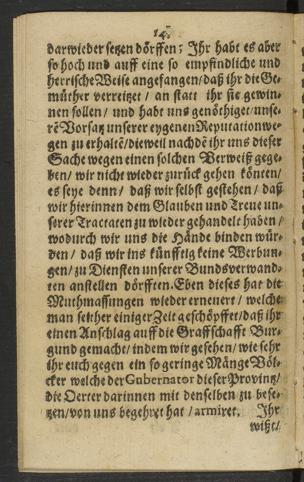 14.
darwieder setzen dörffen; Ihr habt es aber
so hoch und auff eine so empfindliche und
herrische Weise angefangen/ daß ihr die Ge-
müther verreitzet / an statt ihr sie gewin-
nen sollen / und habt uns genöthiget/ unse-
rē Vorsatz unserer eygenen Reputation we-
gen zu erhaltē/ dieweil nachdē ihr uns dieser
Sache wegen einen solchen Verweiß gege-
ben/ wir nicht wieder zurück gehen könten/
es seye denn/ daß wir selbst gestehen / daß
wir hierinnen dem Glauben und Treue un-
serer Tractaten zu wieder gehandelt haben /
wodurch wir uns die Hände binden wür-
den / daß wir ins künfftig keine Werbun-
gen/ zu Diensten unserer Bundsverwand-
ten anstellen dörfften. Eben dieses hat die
Muthmassungen wieder erneuert / welche
man seither einiger Zeit geschöpffet/ daß ihr
einen Anschlag auff die Graffschafft Bur-
gund gemacht/ indem wir gesehen/ wie sehr
ihr euch gegen ein so geringe Mänge Völ-
cker welche der Gubernator dieser Provintz/
die Oerter darinnen mit denselben zu bese-
tzen/ von uns begehret hat / armiret. Ihr
wißt/